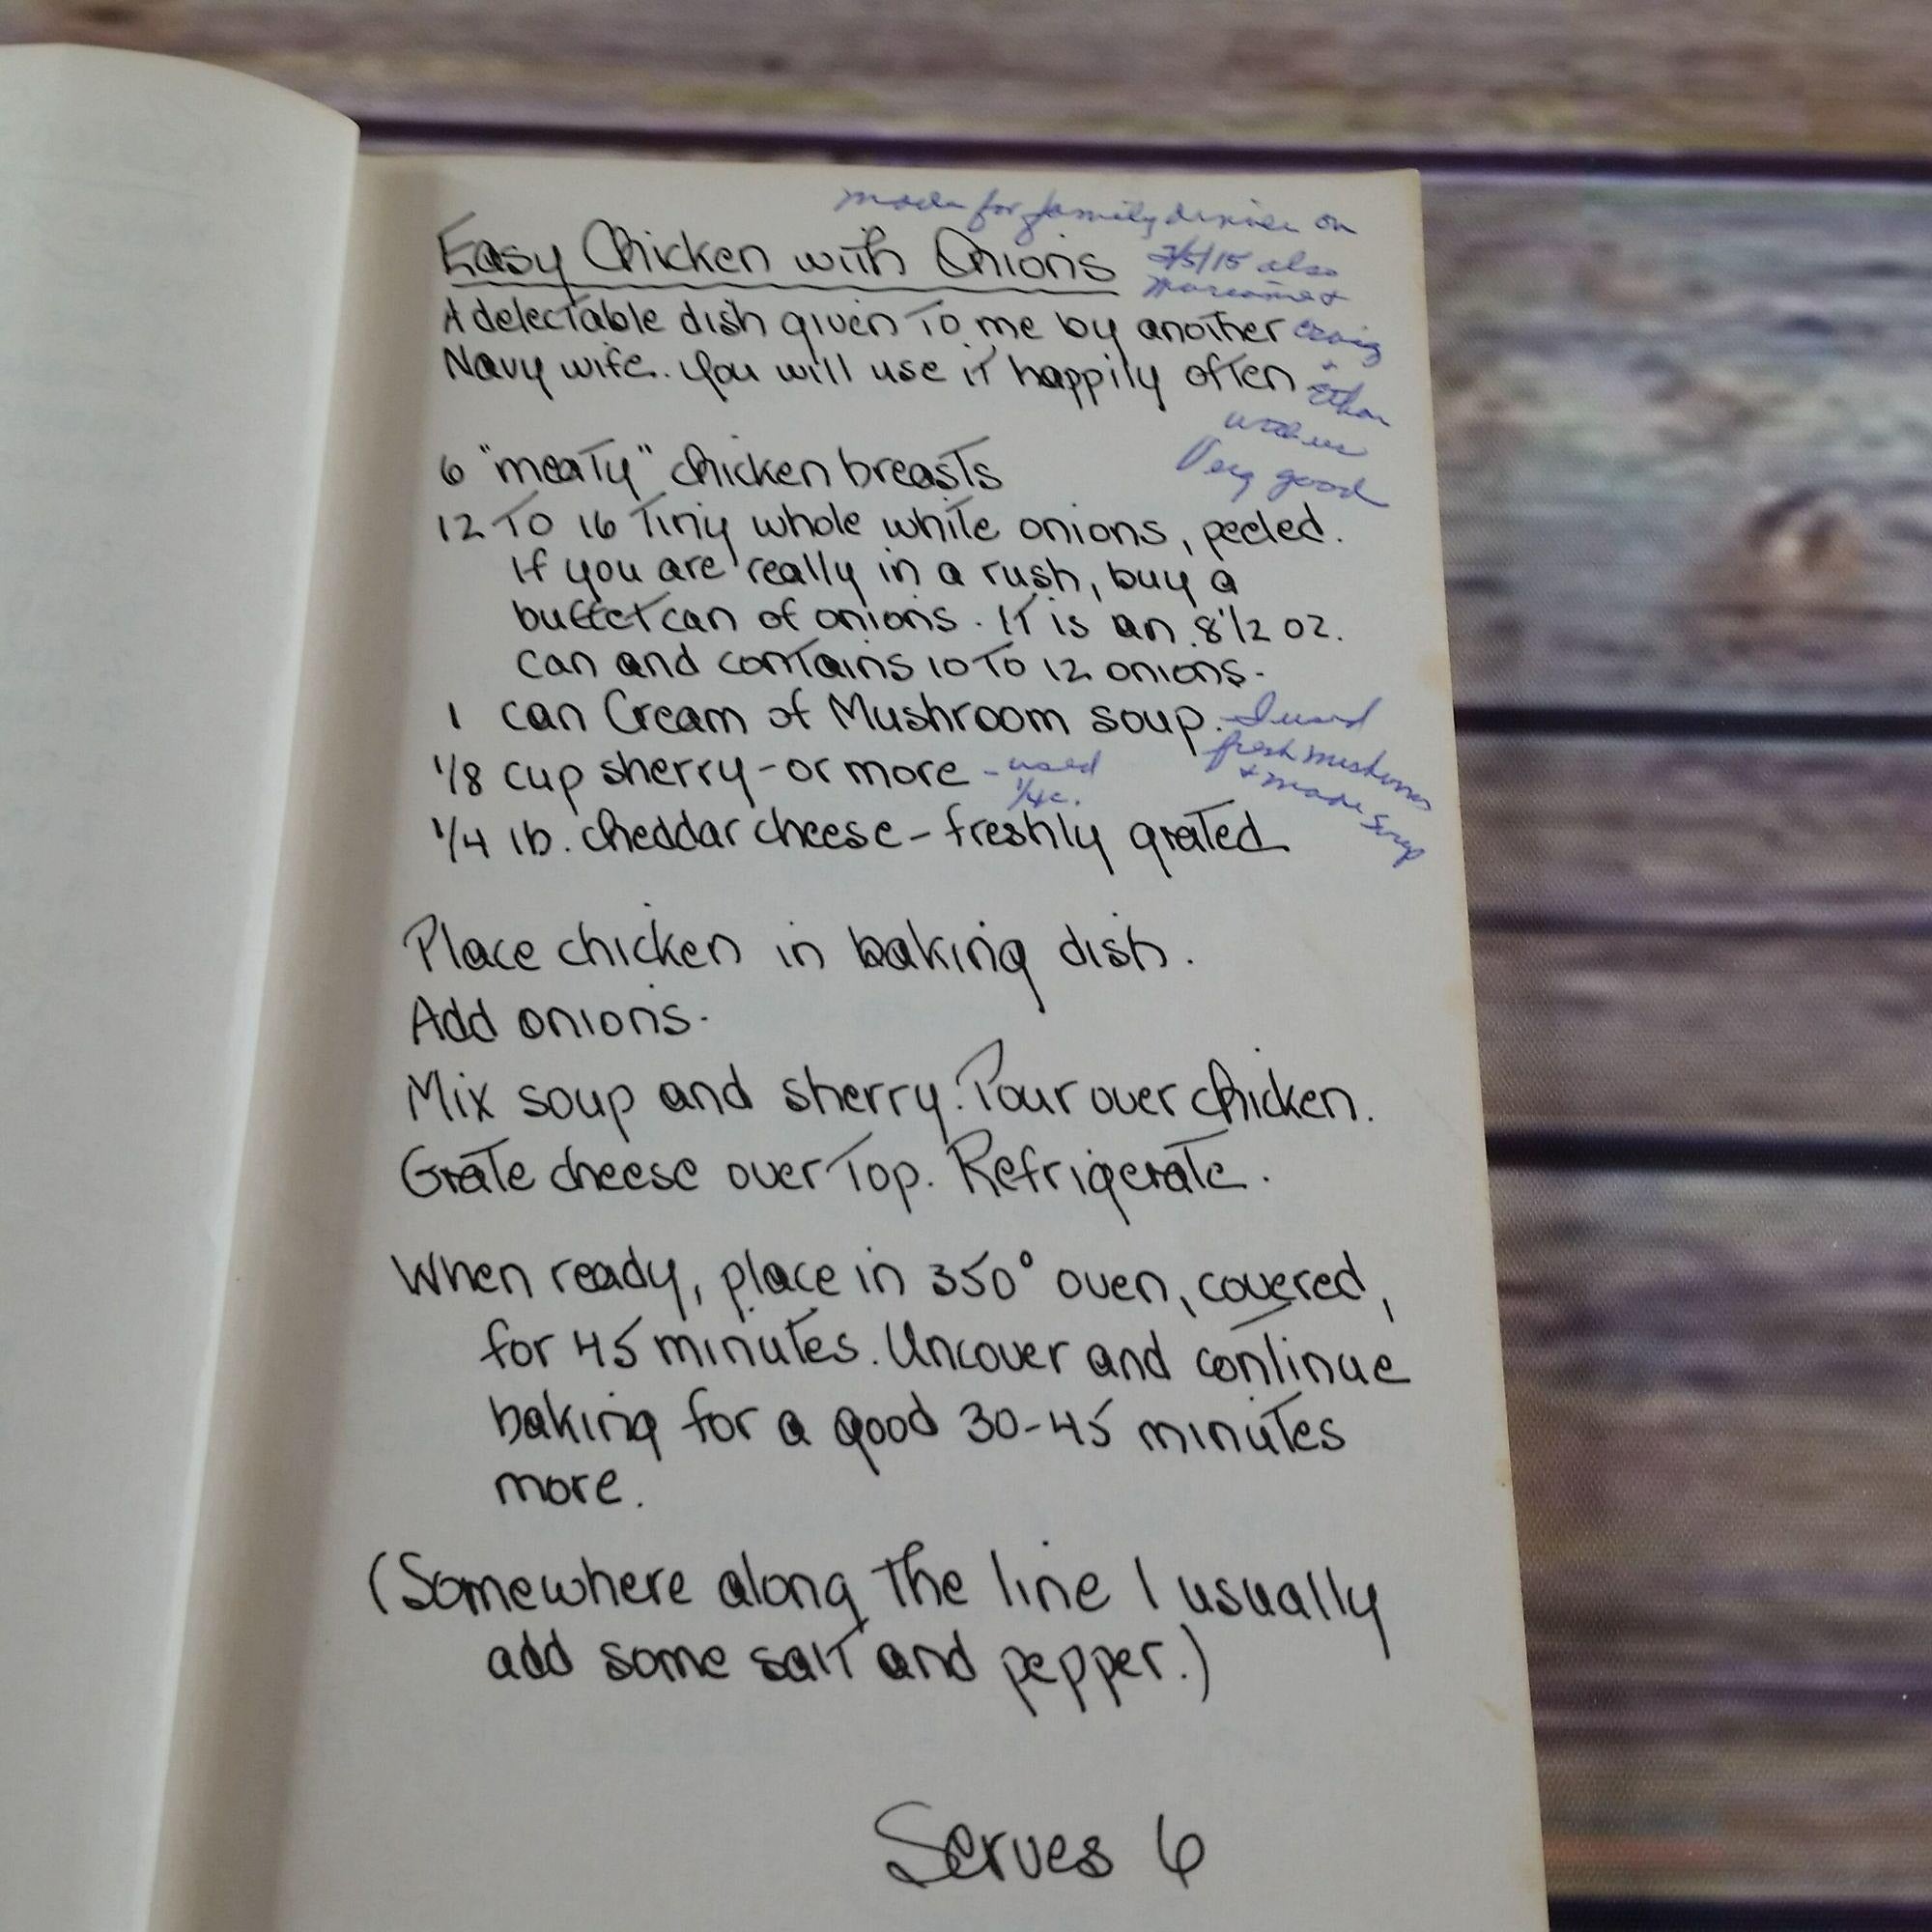 made for family dinner on
Easy Chicken with Onions
/5/15 also
A delectable dish given to me by another
Craig
Navy wife. You will use it happily often
+
Ethan
with us
Very good
6 "meaty" chicken breasts
12 to 16 tiny whole white onions, peeled.
If you are really in a rush, buy a
buffet can of onions. It is an 8 1/2 oz.
can and contains 10 to 12 onions.
1 can Cream of Mushroom soup. - I used
fresh mushrooms
+ made soup
1/8 cup sherry - or more - used
1/4 c.
1/4 lb. cheddar cheese - freshly grated
Place chicken in baking dish.
Add onions.
Mix soup and sherry. Pour over chicken.
Grate cheese over top. Refrigerate.
When ready, place in 350° oven, covered,
for 45 minutes. Uncover and continue
baking for a good 30-45 minutes
more.
(Somewhere along the line I usually
add some salt and pepper.)
Serves 6